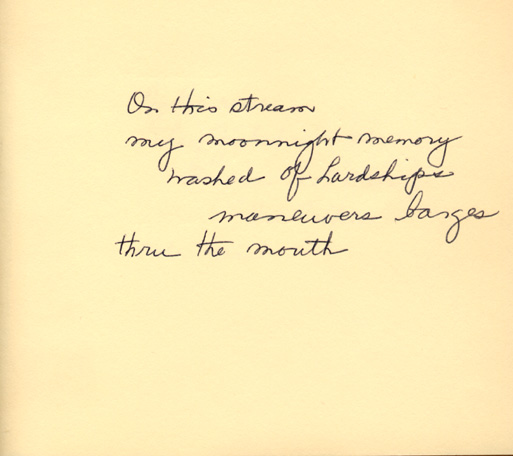 On this stream
my moonnight memory
washed of hardships
maneuvers barges
thru the mouth